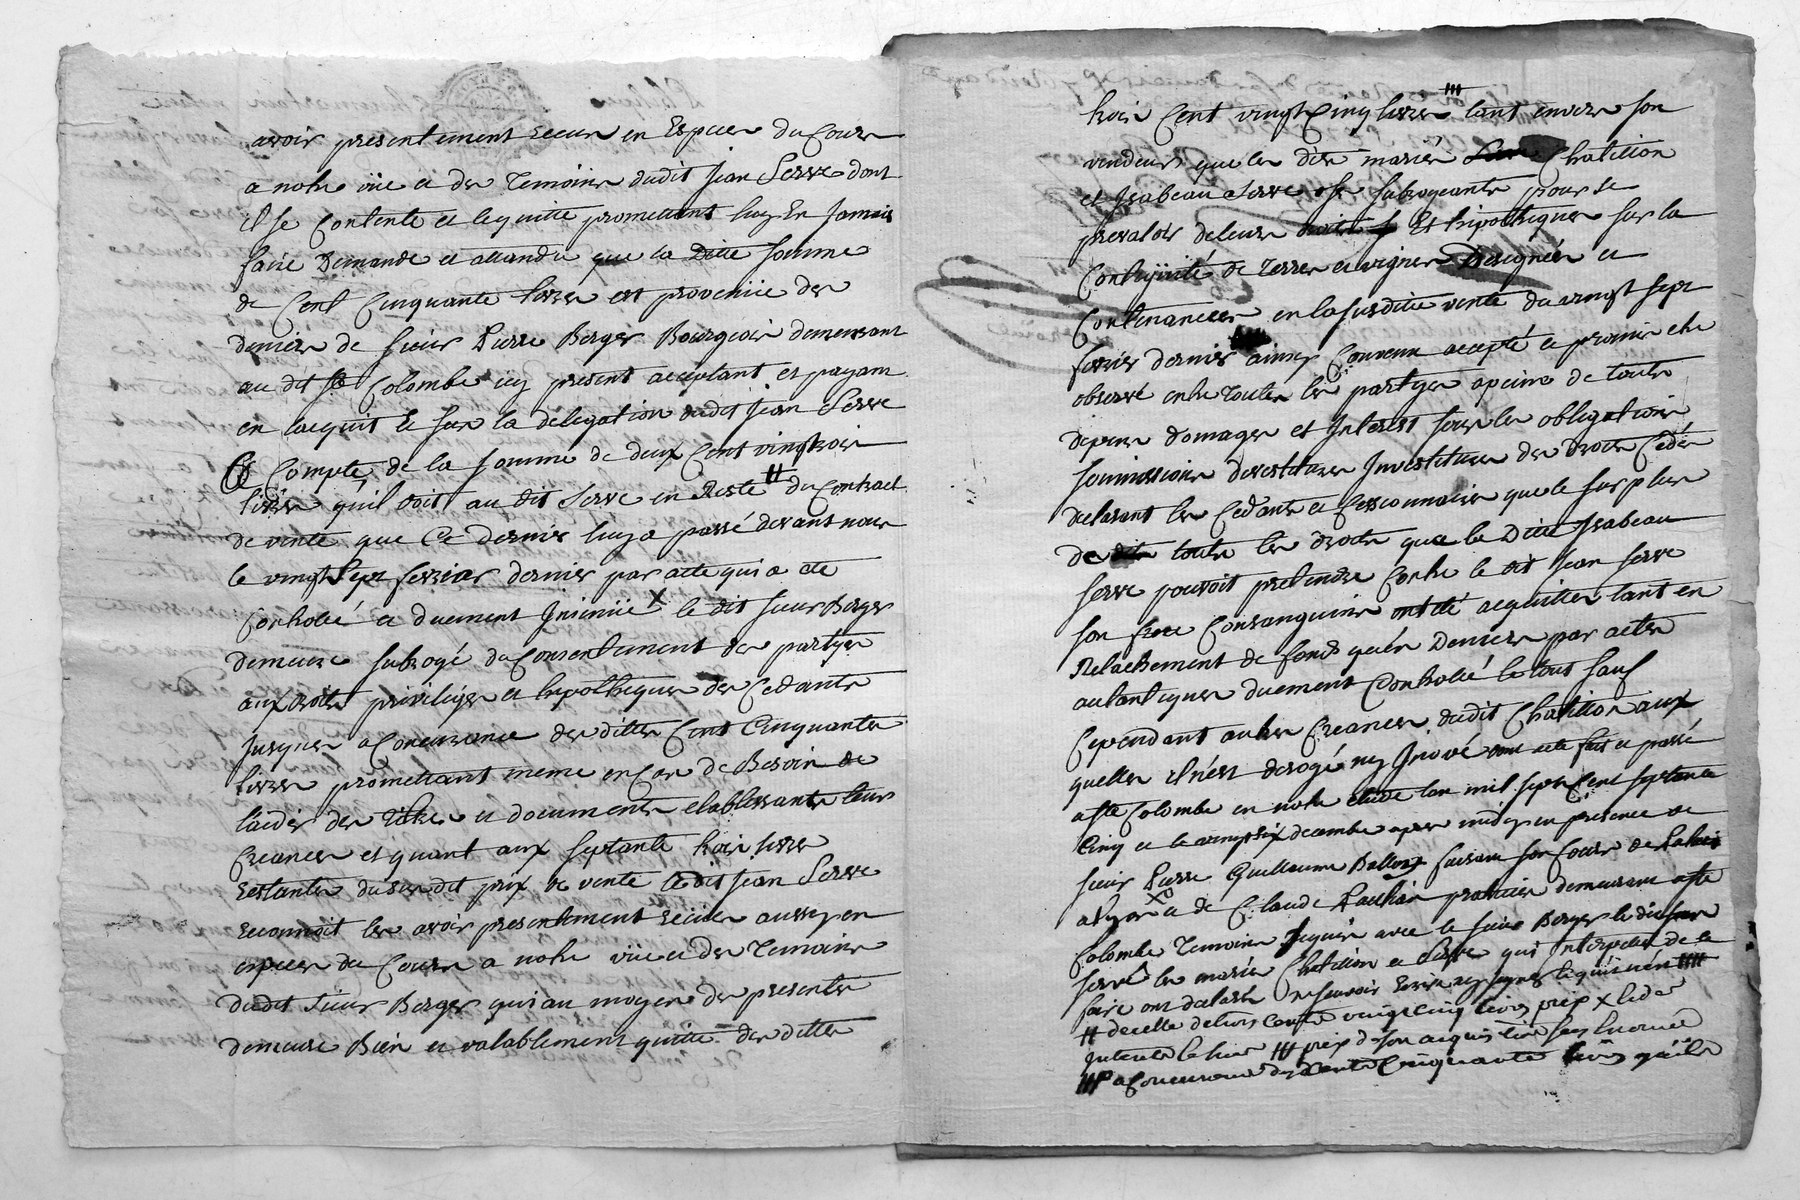 avoir presentement receu en Especes du Cours
a notre viie et des Temoins dudit jean Serve dont
il se Contente et le quitte promettant luy En Jamais
faire Demande et attandu que la Ditte somme
de Cent Cinquante livres est proveniie des
deniers de sieur Pierre Berger Bourgeois demeurant
au dit Ste Colombe icy present acceptant et payant
en lacquit et sur la delegation dudit jean Serve
a Compte de la somme de deux Cent vingt trois
livres qu'il doit au dit Serve en Reste # du Contract
de vente que Ce dernier luy a passé devant nous
le vingt sept fevrier dernier par acte qui a eté
Controllé et duement Insinüé X le dit sieur Berger
demeure subrogé du Consentement des partyes
aux droits privileges et hipotheques des Cedants
jusques a Concurrence des dittes Cent Cinquante
livres promettant meme en Cas de Besoin de
l'aider des titres et documents etablissants leur
Creances et quant aux septante trois livres
restantes du susdit prix de vente ledit jean Serve
reconnoit les avoir presentement recües aussy en
especes du Cours a notre viie et des Temoins
dudit sieur Berger qui au moyen des presentes
demeure Bien et valablement quitte des dittes
trois Cent vingt Cinq livres # tant envers son
vendeur que les dits mariés Chatillon
et Isabeau Serve se subrogeants pour se
prevaloir de leurs Et hipotheques sur la
Contigüité de Terres et vignes Designées et
Contenancées en la susditte vente du vingt sept
fevrier dernier ainsy Convenu accepté et promis etre
observé entre toutes les partyes a peine de touts
depens domages et Interest sous les obligations
soumissions devestitures Investitures des droits Cedés
declarant les Cedants et Cessionnaires que le surplus
de touts les droits que la Ditte Isabeau
Serve pouvoit pretendre Contre le dit jean Serve
son frere Consanguin ont eté acquittés tant en
Relachement de fonds qu'en Deniers par actes
autantiques duement Controllé le tout sauf
Cependant autres Creances dudit Chatillon aux
quelles il n'est derogé ny Innové dont acte fait et passé
a Ste Colombe en notre etude l'an mil sept Cent septante
Cinq et le vingt six decembre apres midy en presence de
sieur Pierre Guillaume faisant son Cours de
a Lyon et de Claude praticien demeurant a Ste
Colombe Temoins requis avec le sieur Berger le dit jean
Serve les mariés Chatillon et Serve qui Interpellés de le
faire ont declaré ne scavoir ecrire ny signer
# de celle de trois cents vingt cinq livres prix X
# prix de son acquisition
# a Concurrence des Cents Cinquante livres qu'ils